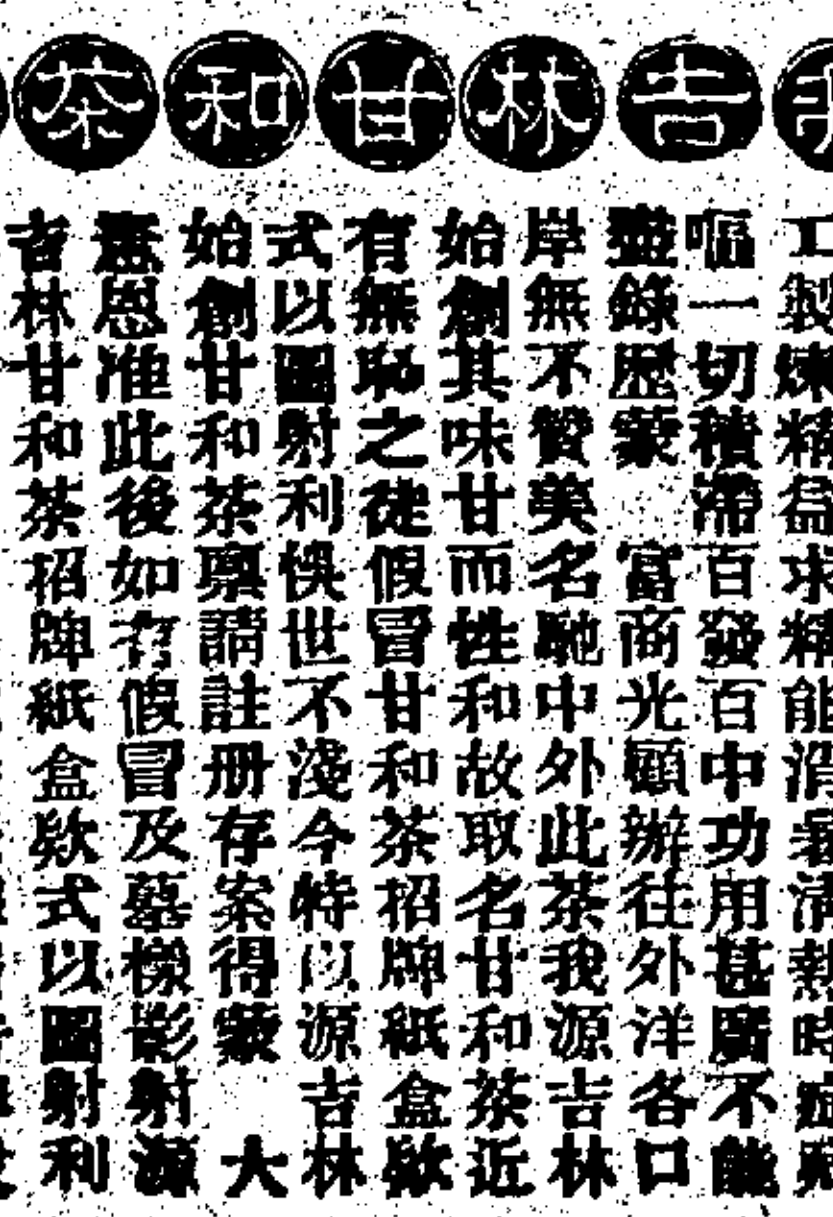 吉林甘和茶
工製煉精益求精能消暑清熱時症
嘔一切積滯百發百中功用甚廣不能
盡錄歷蒙　富商光顧辦往外洋各口
岸無不贊美名馳中外此茶我源吉林
始創其味甘而性和故取名甘和茶近
有無恥之徒假冒甘和茶招牌紙盒欵
式以圖射利悞世不淺今特以源吉林
始創甘和茶稟請註册存案得蒙　大
憲恩准此後如有假冒及摹樣影射源
吉林甘和茶招牌紙盒欵式以圖射利